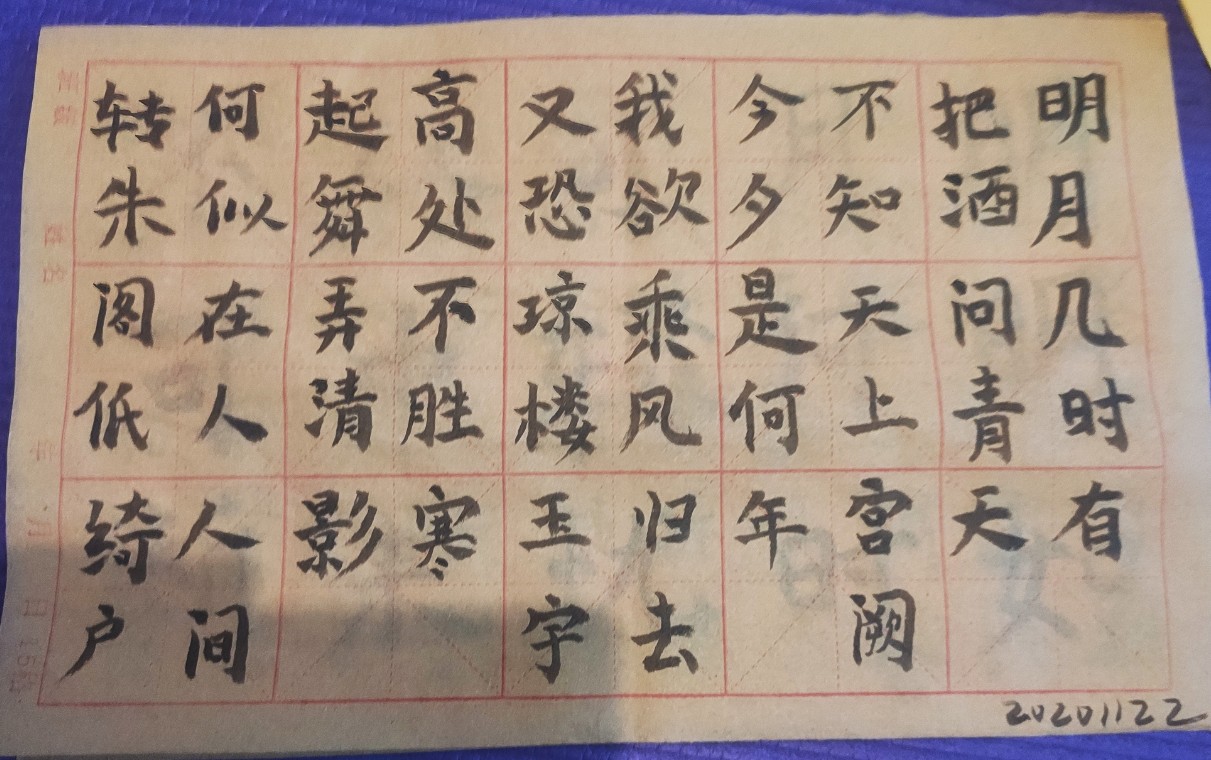 明月几时有
把酒问青天
不知天上宫阙
今夕是何年
我欲乘风归去
又恐琼楼玉宇
高处不胜寒
起舞弄清影
何似在人人间
转朱阁低绮户
20201122